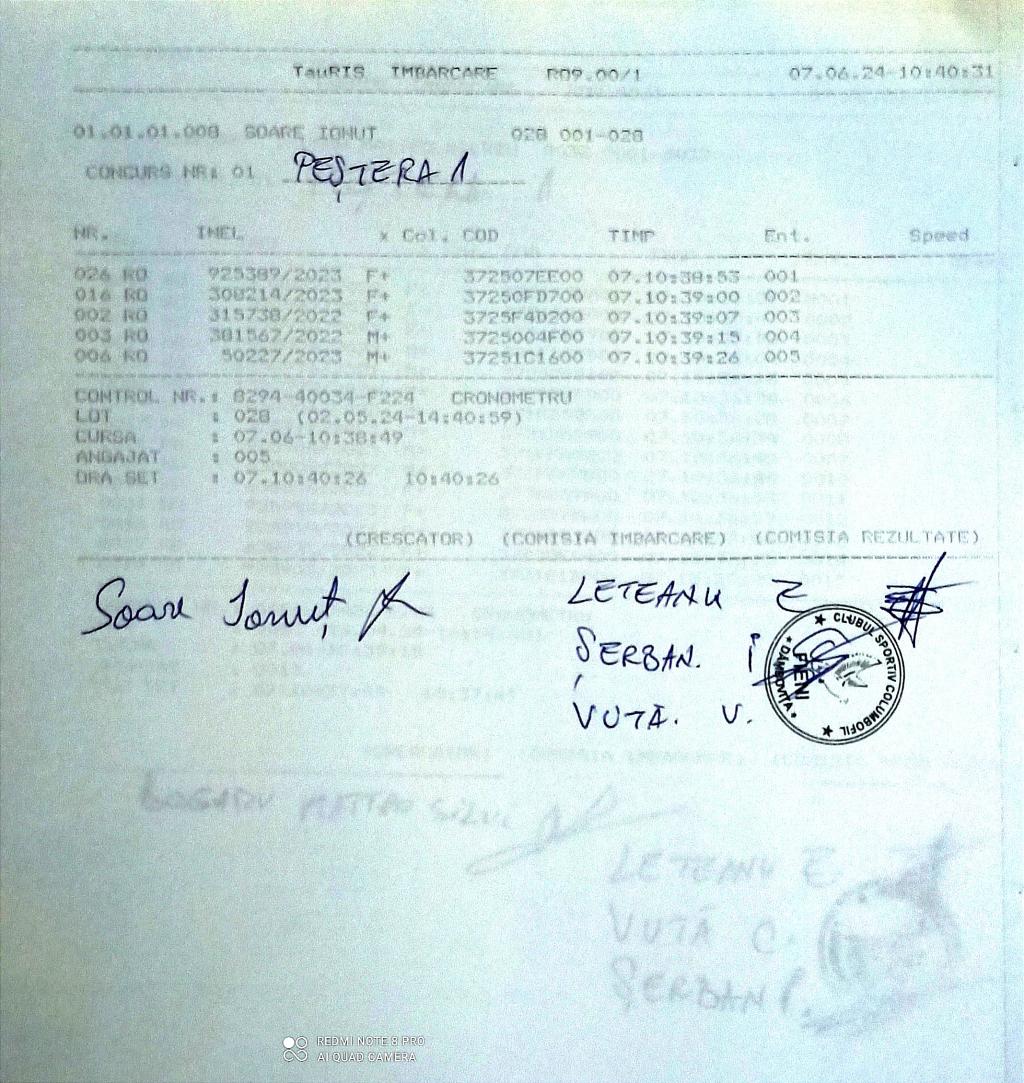 TauRIS IMBARCARE R09.00/1 07.06.24-10:40:31
01.01.01.008 SOARE IONUT 028 001-028
CONCURS NR: 01 PEȘTERA 1
NR. INEL x Col. COD TIMP Ent. Speed
026 RO 925389/2023 F+ 372507EE00 07.10:38:53 001
016 RO 308214/2023 F+ 37250FD700 07.10:39:00 002
002 RO 315738/2022 F+ 3725F4D200 07.10:39:07 003
003 RO 381567/2022 M+ 3725004F00 07.10:39:15 004
006 RO 50227/2023 M+ 37251C1600 07.10:39:26 005
CONTROL NR.: 8294-40034-F224 CRONOMETRU
LOT : 028 (02.05.24-14:40:59)
CURSA : 07.06-10:38:49
ANGAJAT : 005
ORA SET : 07.10:40:26 10:40:26
(CRESCATOR) (COMISIA IMBARCARE) (COMISIA REZULTATE)
Soare Ionuț
LETEANU Z
ȘERBAN. I
VUTĂ. V.
★ CLUBUL SPORTIV COLUMBOFIL ★
* DAMBOVITA *
FIENI
LETEANU Z.
VUTĂ C.
ȘERBAN I.
REDMI NOTE 8 PRO
AI QUAD CAMERA